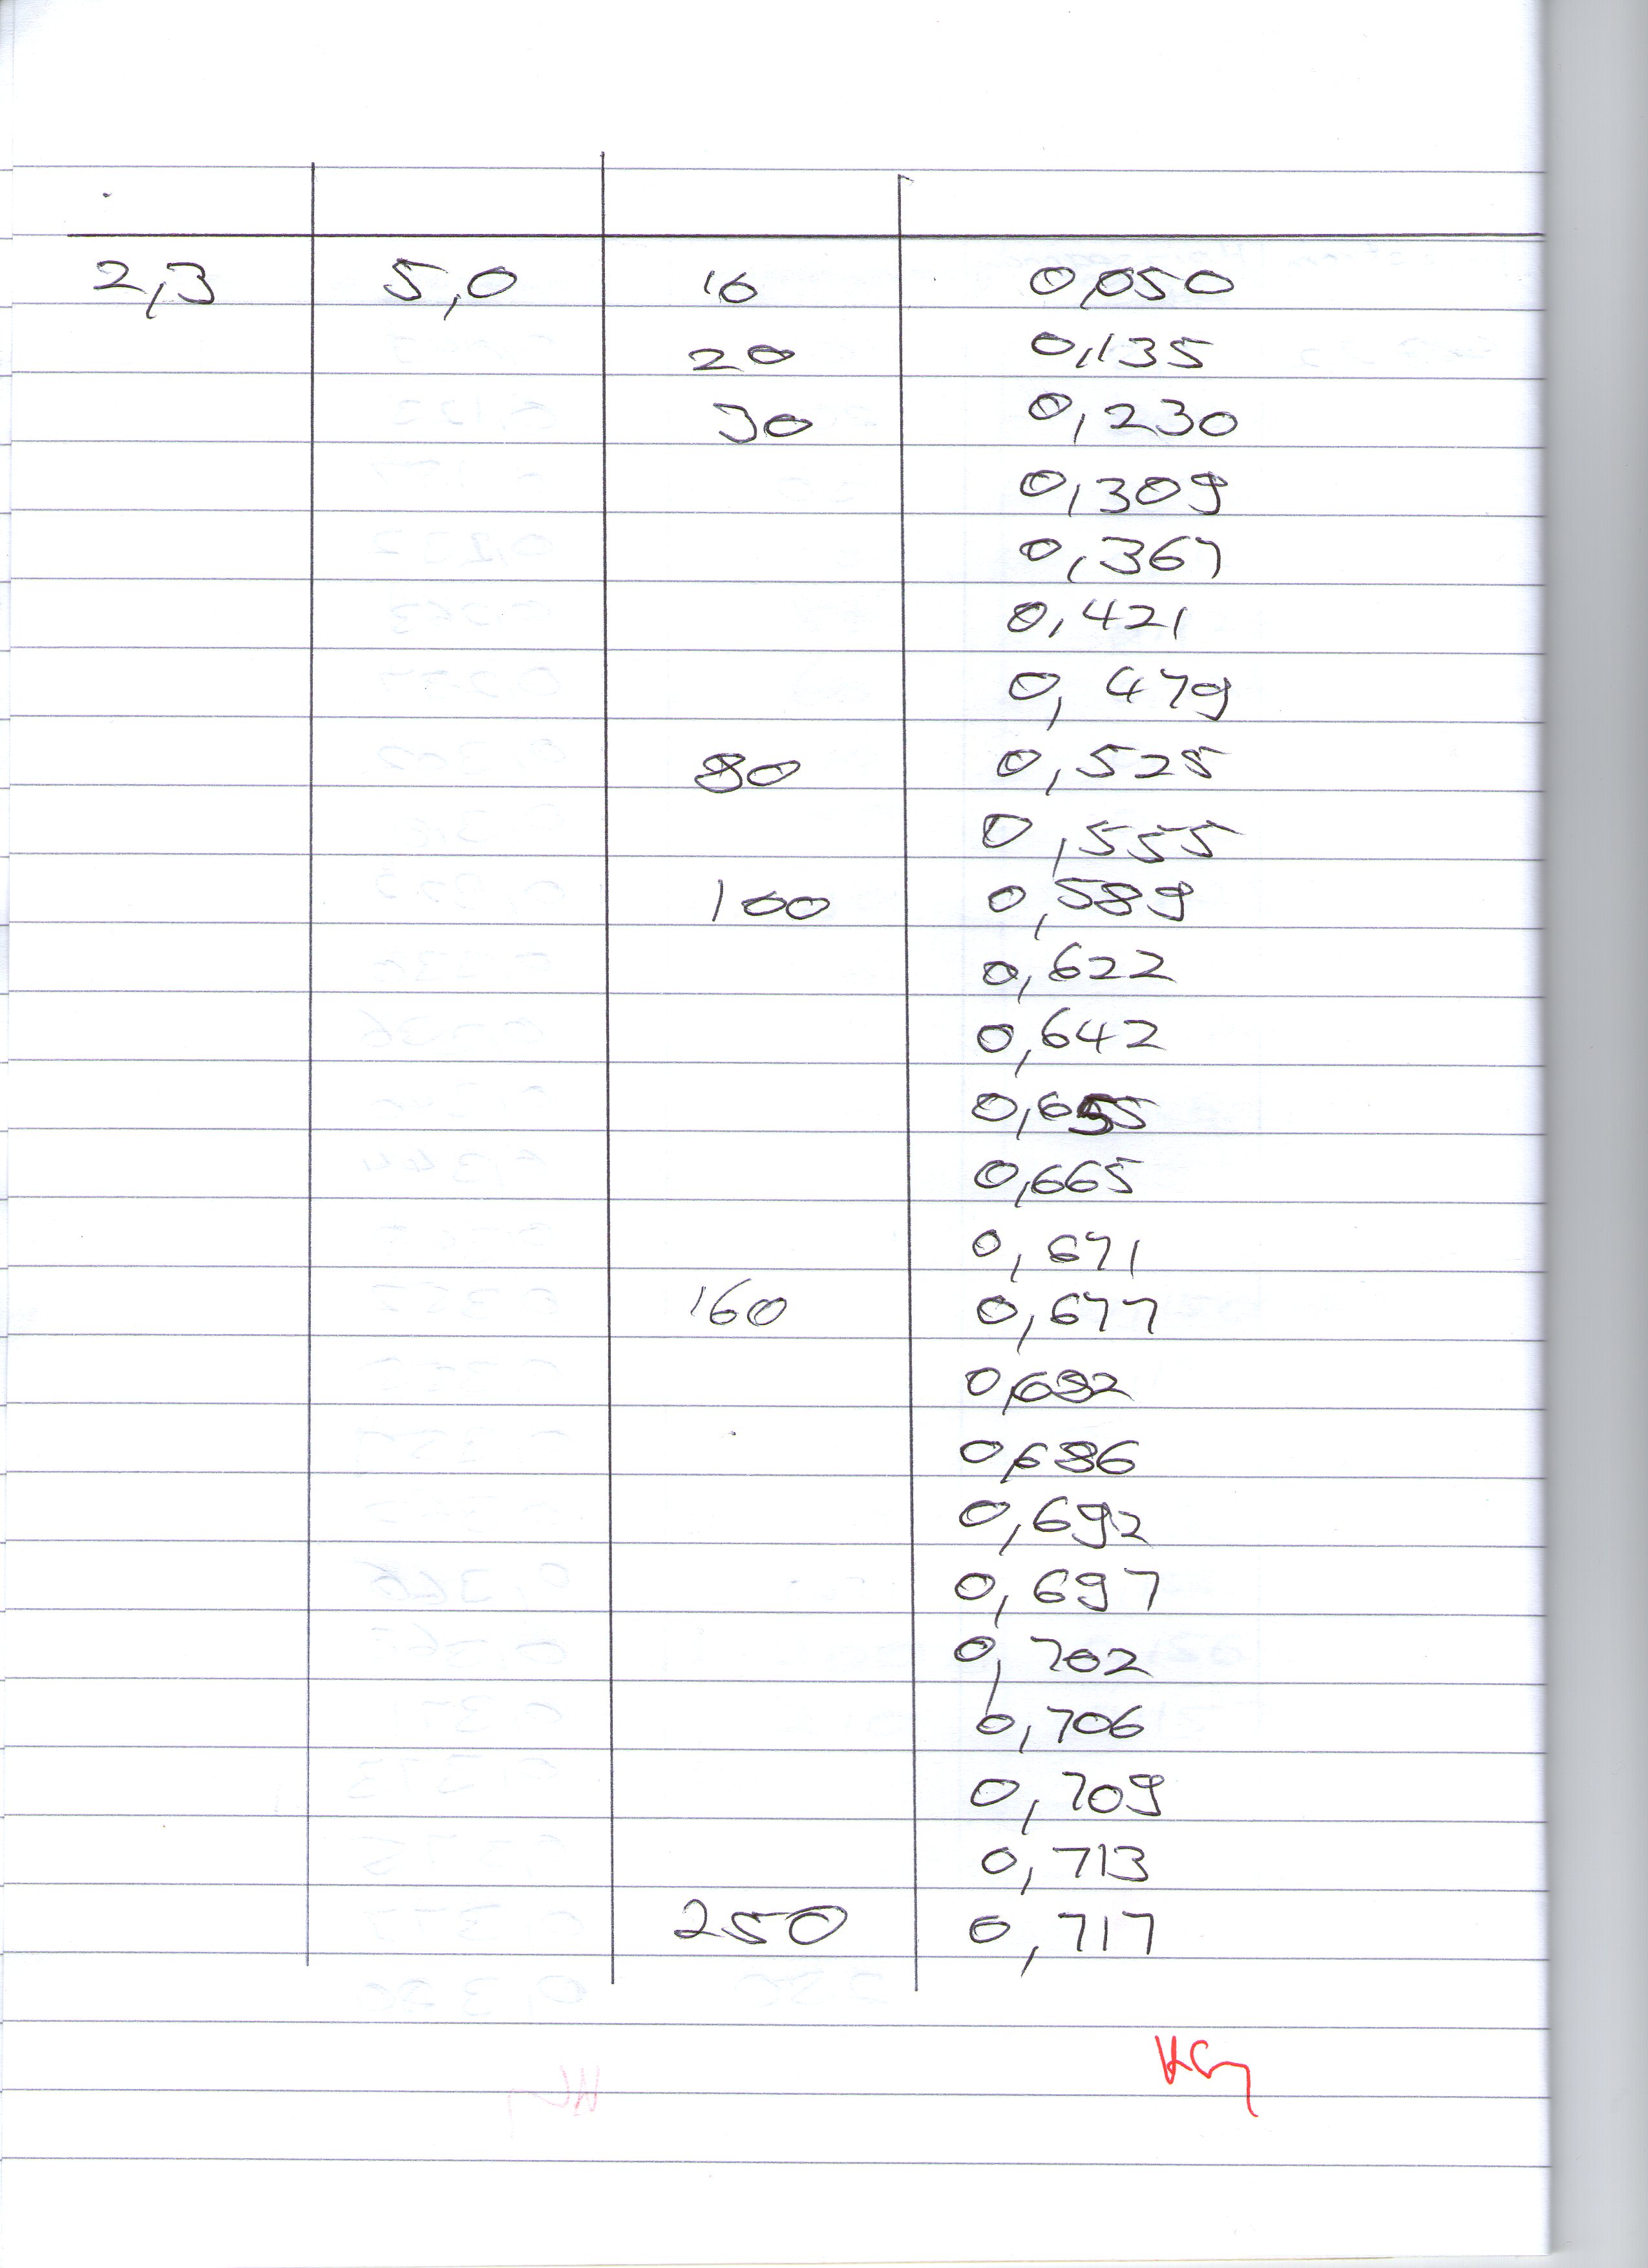 2,3 5,0 10 0,050
20 0,135
30 0,230
0,309
0,367
0,421
0,479
80 0,525
0,555
100 0,589
0,622
0,642
0,655
0,665
0,671
160 0,677
0,682
0,686
0,692
0,697
0,702
0,706
0,709
0,713
250 0,717